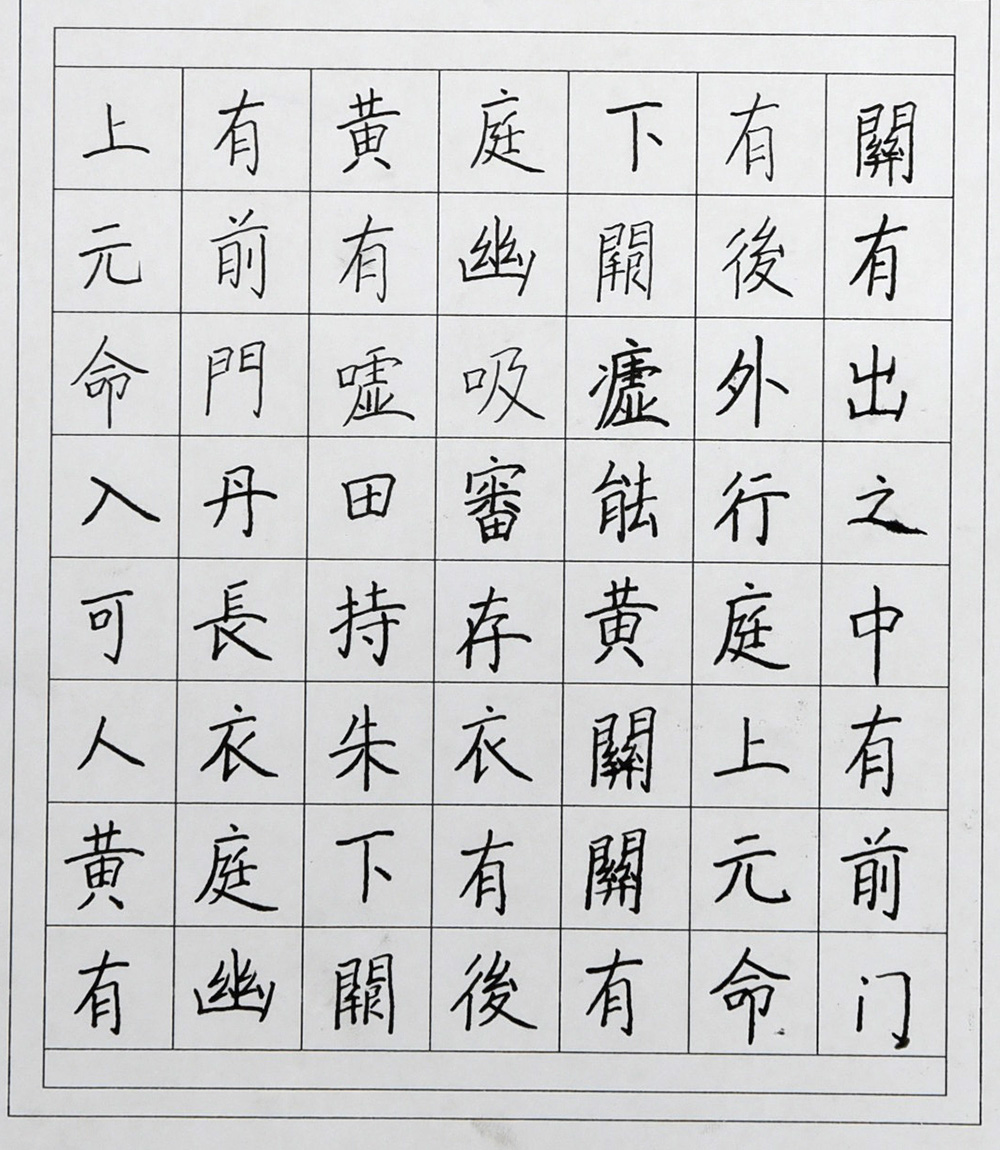 上有黄庭下有關
元前有幽闕後有
命門嘘吸廬外出
入丹田審能行之
可長持存黄庭中
人衣朱衣關上有
黄庭下有關元前
有幽闕後有命门